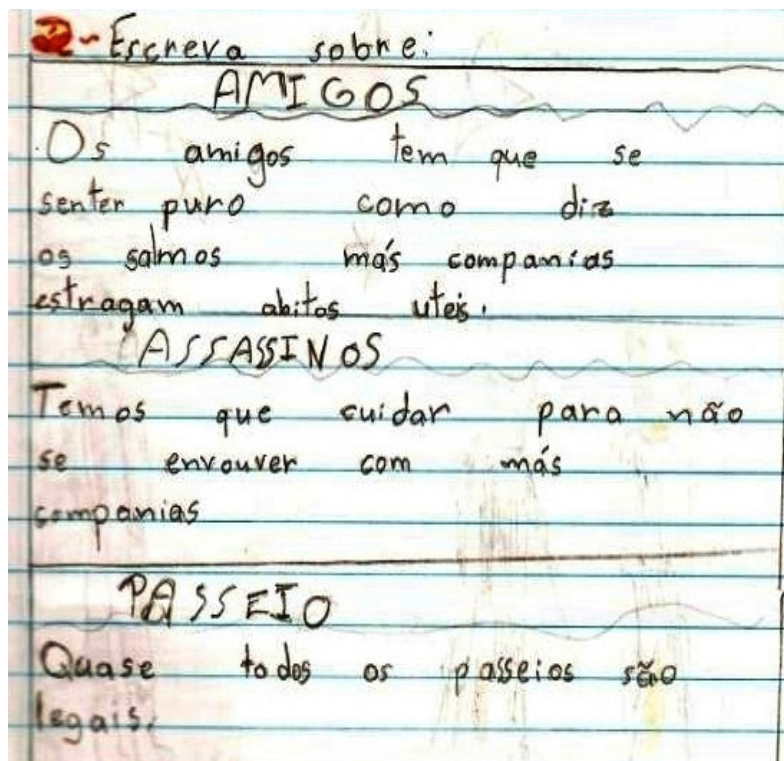 2- Escreva sobre:
AMIGOS
Os amigos tem que se
senter puro como diz
os salmos más companias
estragam abitos uteis.
ASSASSINOS
Temos que cuidar para não
se envouver com más
companias
PASSEIO
Quase todos os passeios são
legais.